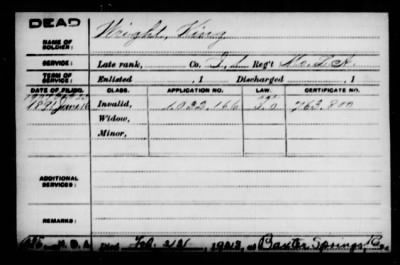 DEAD
NAME OF SOLDIER: Wright, King
SERVICE: Late rank, Co. I, 1 Reg't Mo. S. A.
TERM OF SERVICE: Enlisted , 1 Discharged , 1
DATE OF FILING. CLASS. APPLICATION NO. LAW. CERTIFICATE NO.
1891 June 16 Invalid, 1,032,166 763,890
Widow,
Minor,
ADDITIONAL SERVICES:
REMARKS:
Died Feb. , 1923, at Baxter Springs,